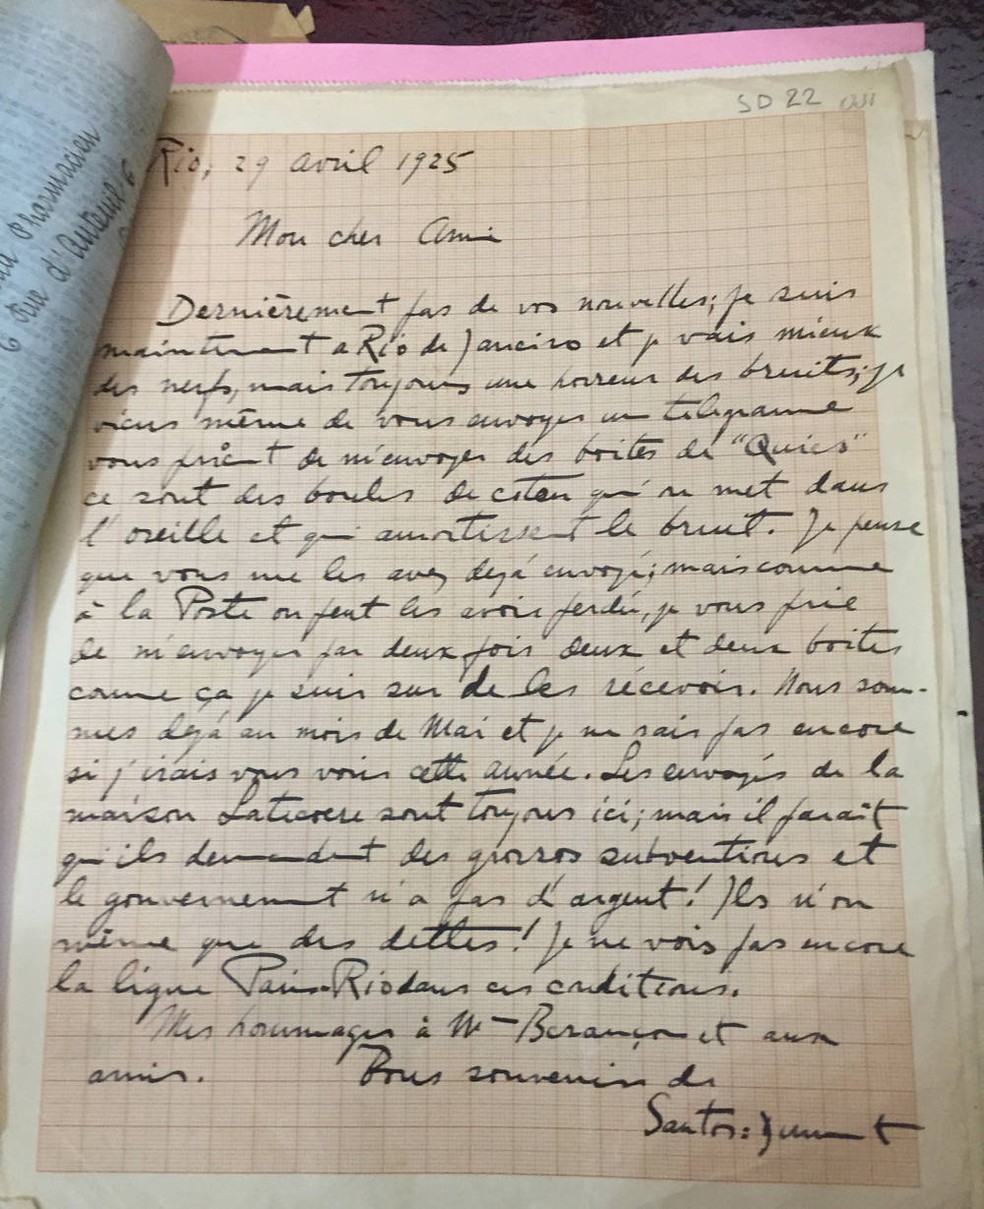 SD 22
Pharmacien
6 Rue d'Auteuil 6
Rio, 29 avril 1925
Mon cher Ami
Dernièrement pas de vos nouvelles; je suis
maintenant a Rio de Janeiro et je vais mieux
des nerfs, mais toujours une horreur des bruits; je
viens même de vous envoyer un telegramme
vous priant de m'envoyer des boites de "Quies"
ce sont des boules de coton qu'on met dans
l'oreille et qui amortissent le bruit. Je pense
que vous me les avez dejá envoyé; mais comme
à la Poste on peut les avoir perdu, je vous prie
de m'envoyer par deux fois deux et deux boites
comme ça je suis sur de les récevoir. Nous som-
mes dejá au mois de Mai et je ne sais pas encore
si j'irais vous voir cette année. Les envoyés de la
maison Latecoere sont toujours ici; mais il parait
qu'ils demandent des grosses subventions et
le gouvernement n'a pas d'argent! Ils n'on
même que des dettes! Je ne vois pas encore
la ligne Paris-Rio dans ces conditions.
Mes hommages à Mme Besançon et aux
amis. Bons souvenirs de
Santos=Dumont